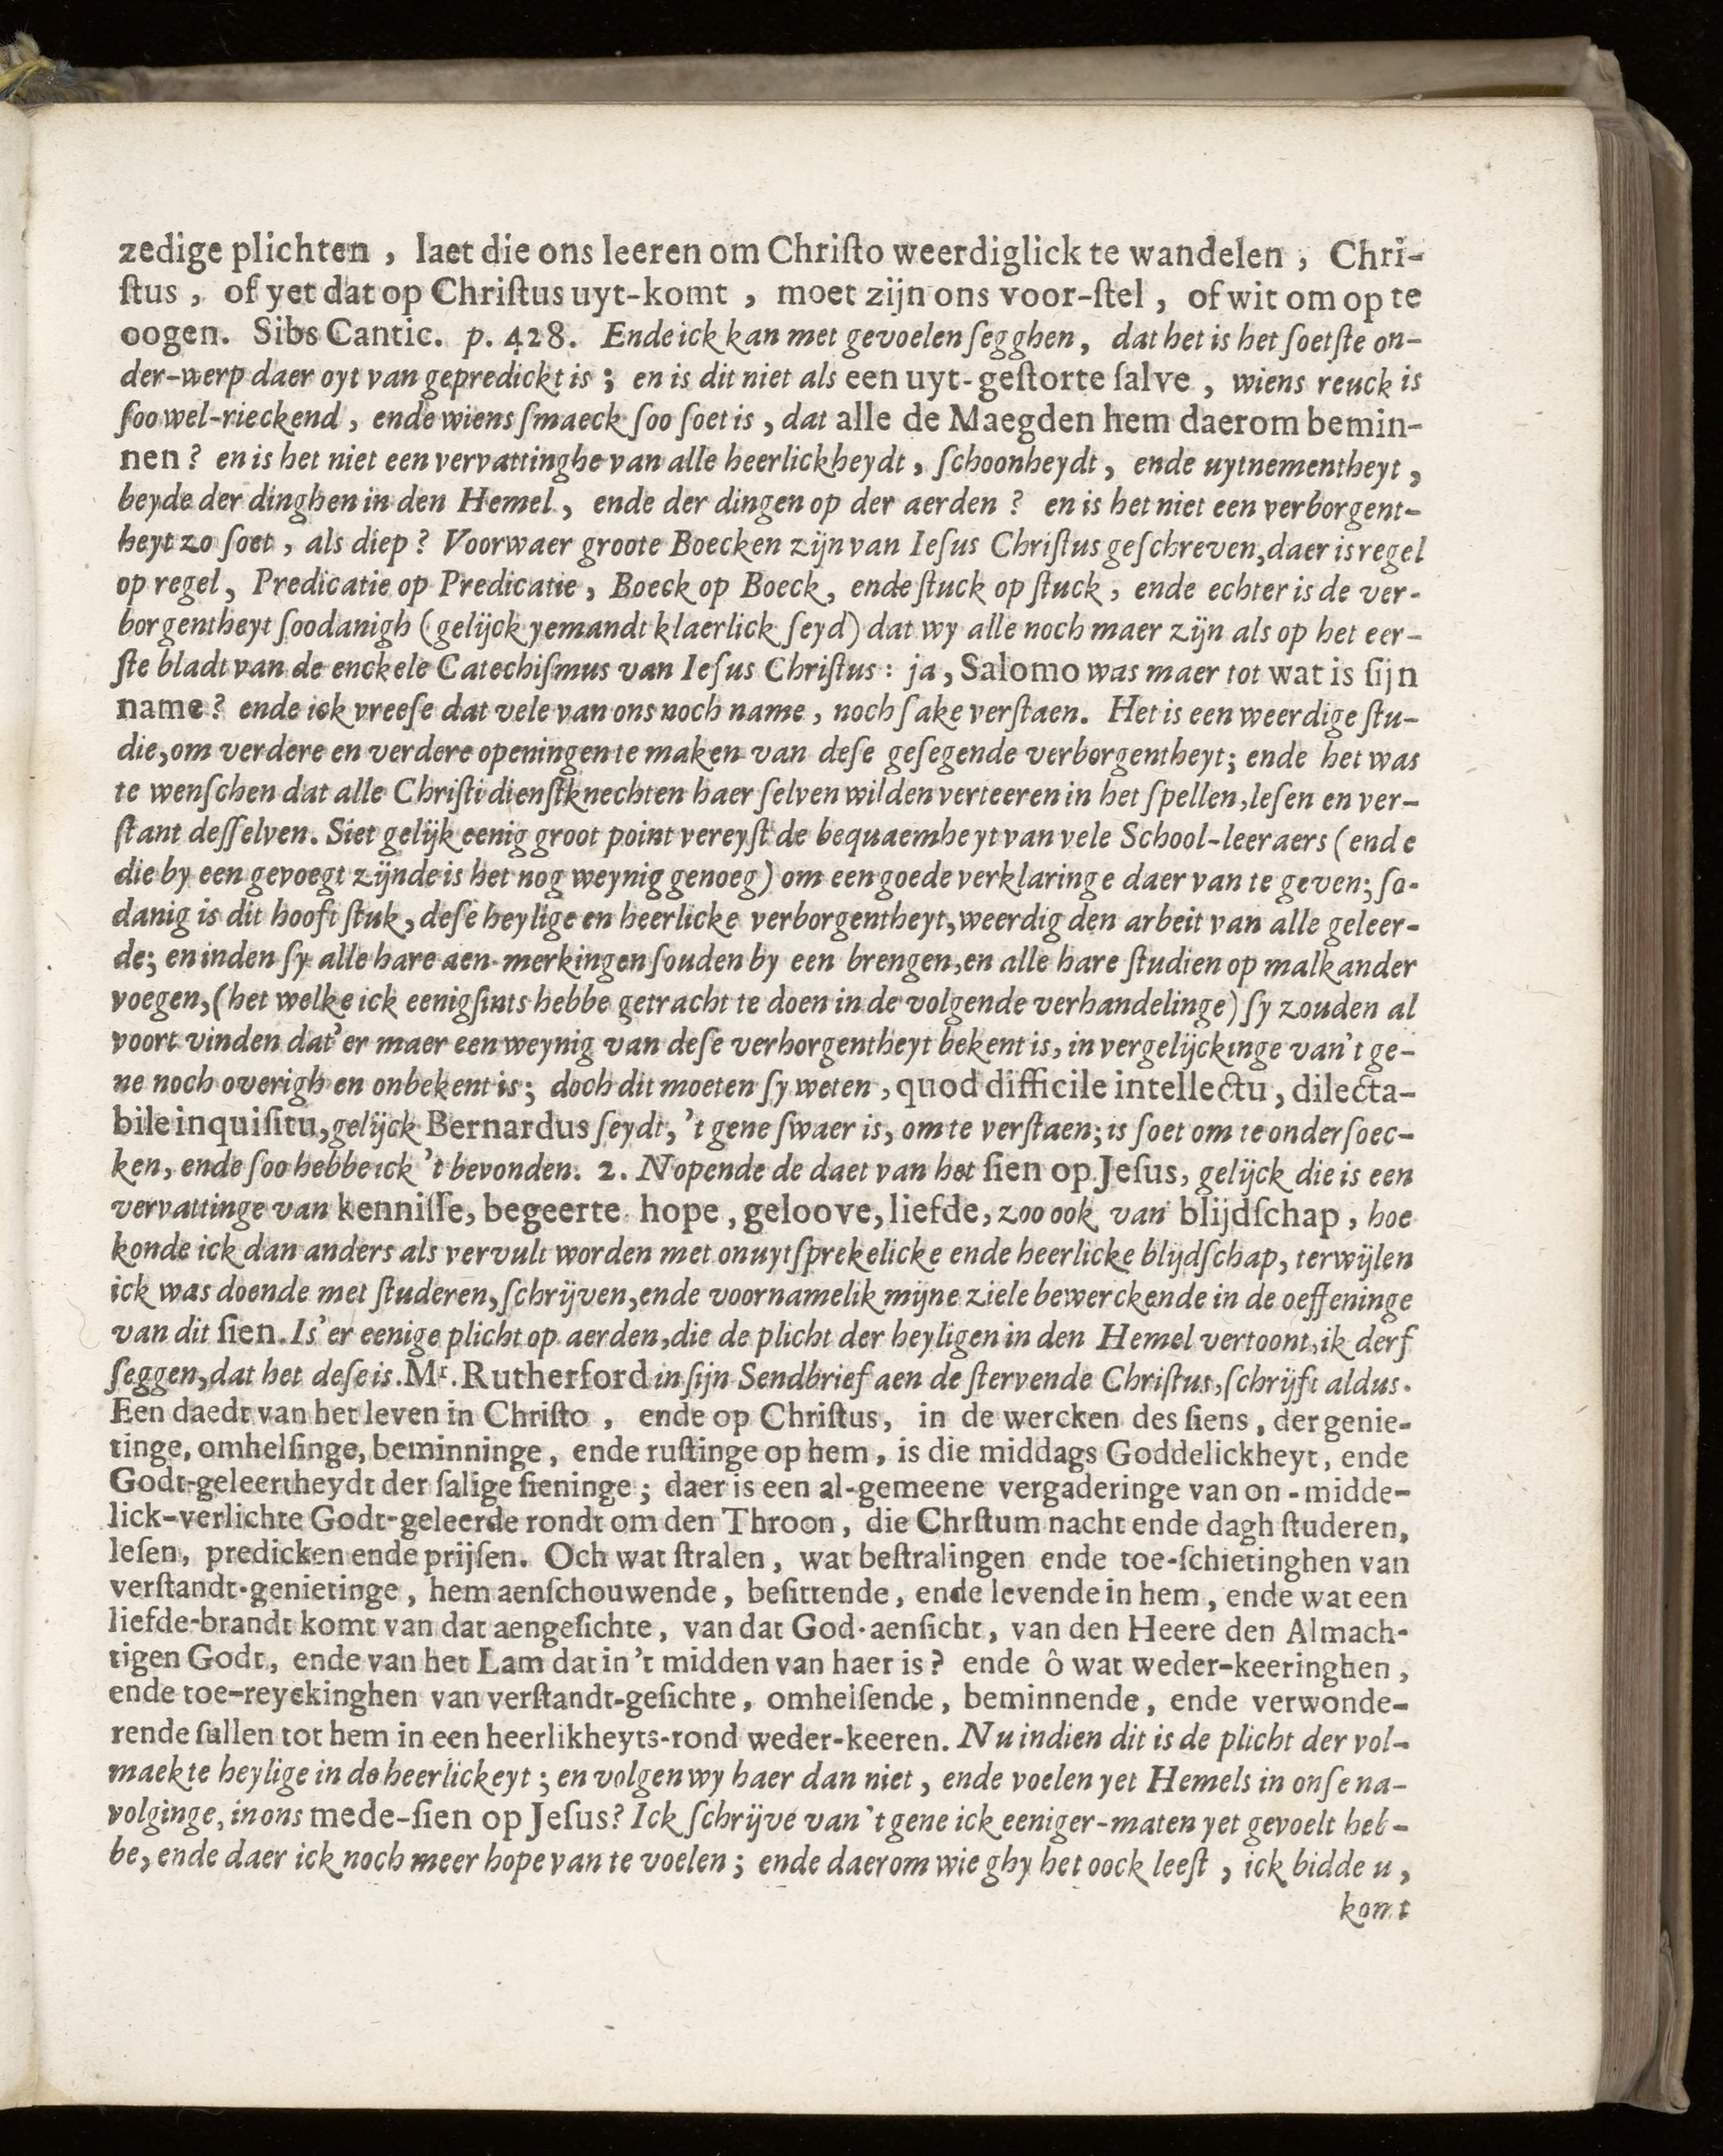 zedige plichten , laet die ons leeren om Chriſto weerdiglick te wandelen ; Chri-
ſtus , of yet dat op Chriſtus uyt-komt , moet zijn ons voor-ſtel , of wit om op te
oogen. Sibs Cantic. p. 428. Ende ick kan met gevoelen ſegghen, dat het is het ſoetſte on-
der-werp daer oyt van gepredickt is ; en is dit niet als een uyt-geſtorte ſalve , wiens reuck is
ſoo wel-rieckend , ende wiens ſmaeck ſoo ſoet is , dat alle de Maegden hem daerom bemin-
nen ? en is het niet een vervattinghe van alle heerlickheydt , ſchoonheydt , ende uytnementheyt ,
beyde der dinghen in den Hemel , ende der dingen op der aerden ? en is het niet een verborgent-
heyt zo ſoet , als diep ? Voorwaer groote Boecken zijn van Ieſus Chriſtus geſchreven,daer is regel
op regel, Predicatie op Predicatie , Boeck op Boeck, ende ſtuck op ſtuck , ende echter is de ver-
borgentheyt ſoodanigh (gelijck yemandt klaerlick ſeyd) dat wy alle noch maer zijn als op het eer-
ſte bladt van de enckele Catechiſmus van Ieſus Chriſtus : ja , Salomo was maer tot wat is ſijn
name ? ende ick vreeſe dat vele van ons noch name , noch ſake verſtaen. Het is een weerdige ſtu-
die,om verdere en verdere openingen te maken van deſe geſegende verborgentheyt; ende het was
te wenſchen dat alle Chriſti dienſtknechten haer ſelven wilden verteeren in het ſpellen,leſen en ver-
ſtant deſſelven. Siet gelijk eenig groot point vereyſt de bequaemheyt van vele School-leeraers (ende
die by een gevoegt zijnde is het nog weynig genoeg) om een goede verklaringe daer van te geven; ſo-
danig is dit hooft ſtuk, deſe heylige en heerlicke verborgentheyt,weerdig den arbeit van alle geleer-
de; en inden ſy alle hare aen-merkingen ſouden by een brengen,en alle hare ſtudien op malkander
voegen,(het welke ick eenigſints hebbe getracht te doen in de volgende verhandelinge) ſy zouden al
voort vinden dat'er maer een weynig van deſe verhorgentheyt bekent is, in vergelijckinge van't ge-
ne noch overigh en onbekent is; doch dit moeten ſy weten , quod difficile intellectu , dilecta-
bile inquiſitu, gelijck Bernardus ſeydt, 't gene ſwaer is, om te verſtaen; is ſoet om te onderſoec-
ken, ende ſoo hebbe ick 't bevonden. 2. Nopende de daet van het ſien op Jeſus, gelijck die is een
vervattinge van kenniſſe, begeerte hope , geloove, liefde, zoo ook van blijdſchap , hoe
konde ick dan anders als vervult worden met onuytſprekelicke ende heerlicke blijdſchap, terwijlen
ick was doende met ſtuderen,ſchrijven,ende voornamelik mijne ziele bewerckende in de oeffeninge
van dit ſien. Is'er eenige plicht op aerden,die de plicht der heyligen in den Hemel vertoont,ik derf
ſeggen,dat het deſe is. Mr. Rutherford in ſijn Sendbrief aen de ſtervende Chriſtus,ſchrijft aldus.
Een daedt van het leven in Chriſto , ende op Chriſtus, in de wercken des ſiens , der genie-
tinge, omhelſinge, beminninge , ende ruſtinge op hem , is die middags Goddelickheyt , ende
Godt-geleertheydt der ſalige ſieninge ; daer is een al-gemeene vergaderinge van on-midde-
lick-verlichte Godt-geleerde rondt om den Throon , die Chrſtum nacht ende dagh ſtuderen,
leſen, predicken ende prijſen. Och wat ſtralen , wat beſtralingen ende toe-ſchietinghen van
verſtandt-genietinge , hem aenſchouwende , beſittende , ende levende in hem , ende wat een
liefde-brandt komt van dat aengeſichte , van dat God-aenſicht , van den Heere den Almach-
tigen Godt, ende van het Lam dat in 't midden van haer is ? ende ô wat weder-keeringhen ,
ende toe-reyckinghen van verſtandt-geſichte, omhelſende, beminnende, ende verwonde-
rende ſullen tot hem in een heerlikheyts-rond weder-keeren. Nu indien dit is de plicht der vol-
maekte heylige in de heerlickeyt ; en volgen wy haer dan niet , ende voelen yet Hemels in onſe na-
volginge, in ons mede-ſien op Jeſus? Ick ſchrijve van't gene ick eeniger-maten yet gevoelt heb-
be, ende daer ick noch meer hope van te voelen ; ende daerom wie ghy het oock leeſt , ick bidde u ,
komt